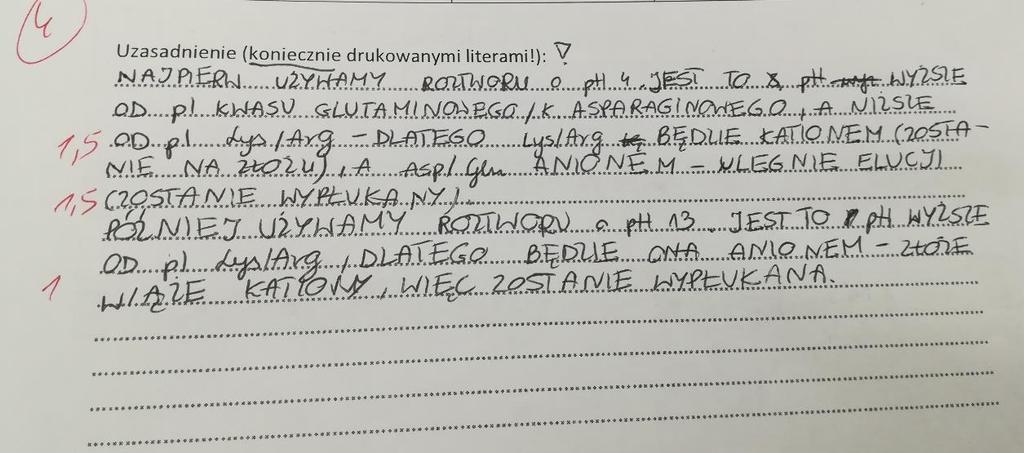 4
Uzasadnienie (koniecznie drukowanymi literami!):
NAJPIERW UŻYWAMY ROZTWORU O pH 4. JEST TO pH WYŻSZE
OD pI KWASU GLUTAMINOWEGO/K. ASPARAGINOWEGO, A NIŻSZE
1,5 OD pI Lys/Arg – DLATEGO Lys/Arg BĘDZIE KATIONEM (ZOSTA-
NIE NA ZŁOŻU), A Asp/Glu ANIONEM – ULEGNIE ELUCJI
1,5 (ZOSTANIE WYPŁUKANY).
PÓŹNIEJ UŻYWAMY ROZTWORU o pH 13. JEST TO pH WYŻSZE
OD pI Lys/Arg, DLATEGO BĘDZIE ONA ANIONEM – ZŁOŻE
1 WIĄŻE KATIONY, WIĘC ZOSTANIE WYPŁUKANA.